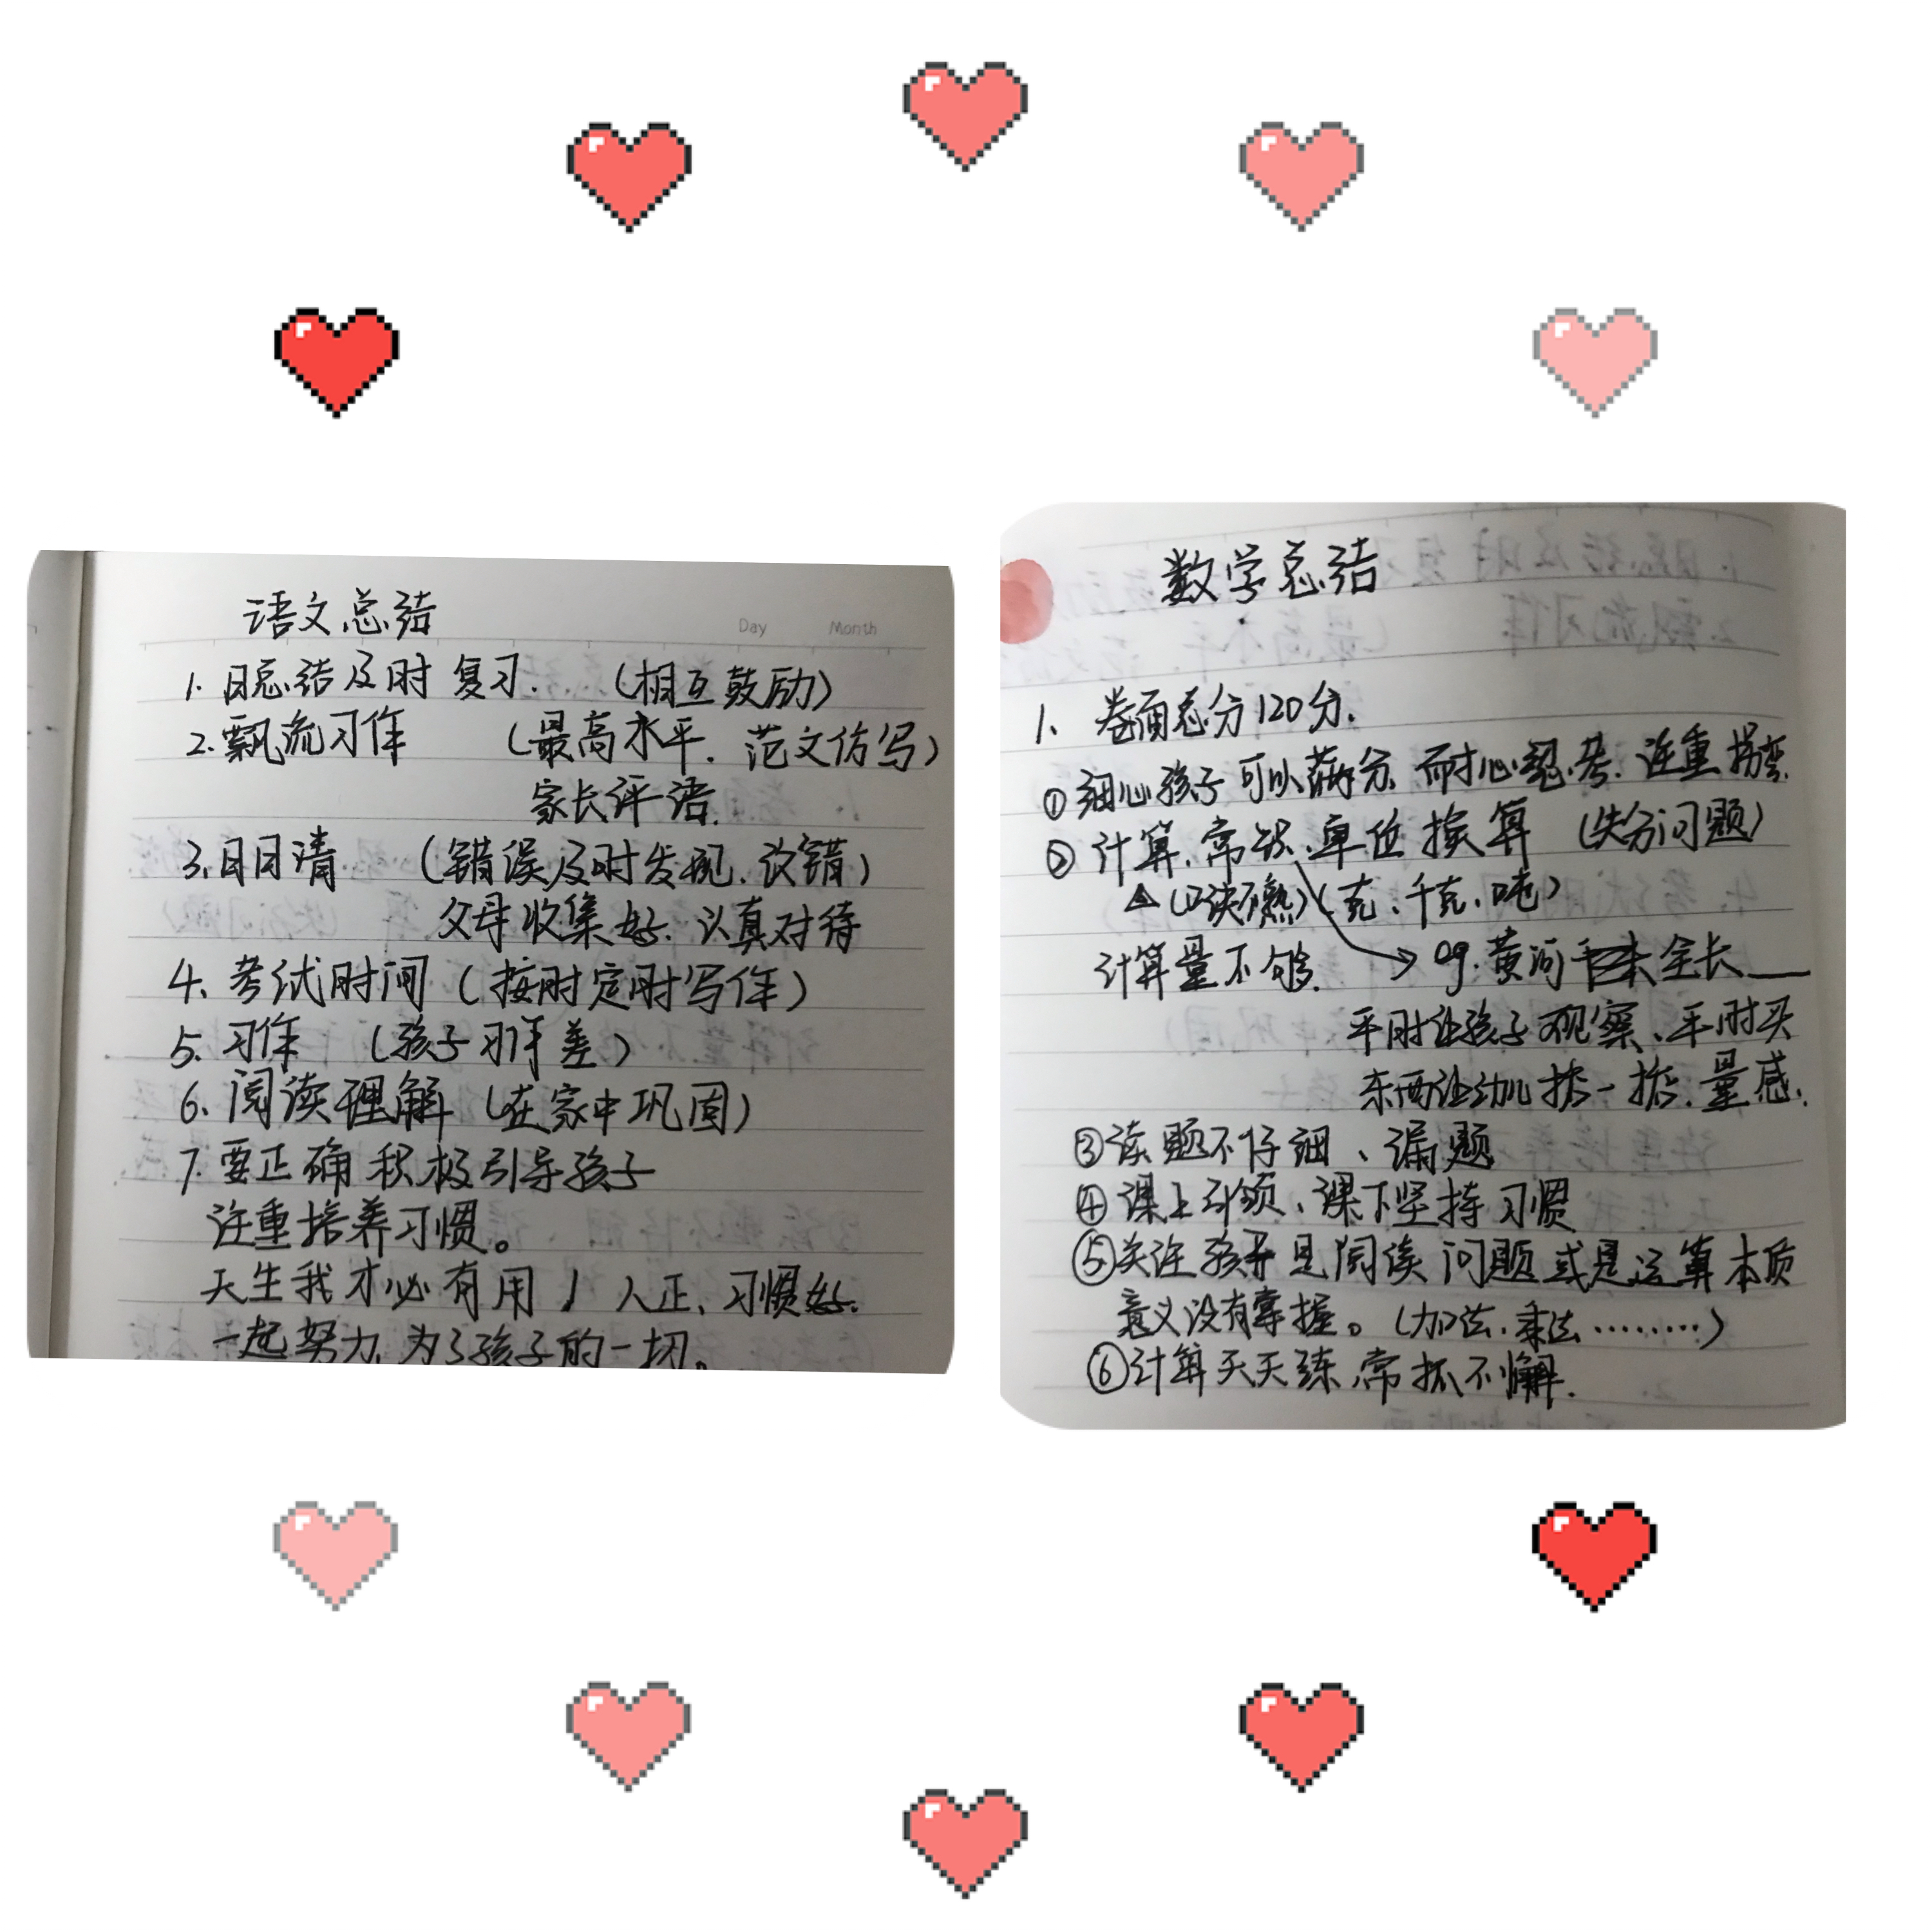 语文总结
Day Month
1. 日总结及时复习. (相互鼓励)
2. 飘流习作 (最高水平. 范文仿写)
家长评语.
3. 日日清 (错误及时发现. 改错)
父母收集好. 认真对待
4. 考试时间 (按时定时写作)
5. 习作 (孩子习作差)
6. 阅读理解 (在家中巩固)
7. 要正确积极引导孩子
注重培养习惯。
天生我才必有用! 人正、习惯好.
一起努力, 为了孩子的一切。
数学总结
1. 卷面总分120分.
①细心孩子可以满分. 耐心思考. 注重拐弯.
②计算. 常识. 单位换算 (失分问题)
▲(口诀不熟) (克、千克、吨)
计算量不够. → eg. 黄河 全长___
平时让孩子观察、平时买
东西让幼儿掂一掂. 量感.
③读题不仔细、漏题
④课上引领、课下坚持习惯
⑤关注孩子是阅读问题或是运算本质
意义没有掌握。(加法、乘法………)
⑥计算天天练, 常抓不懈.